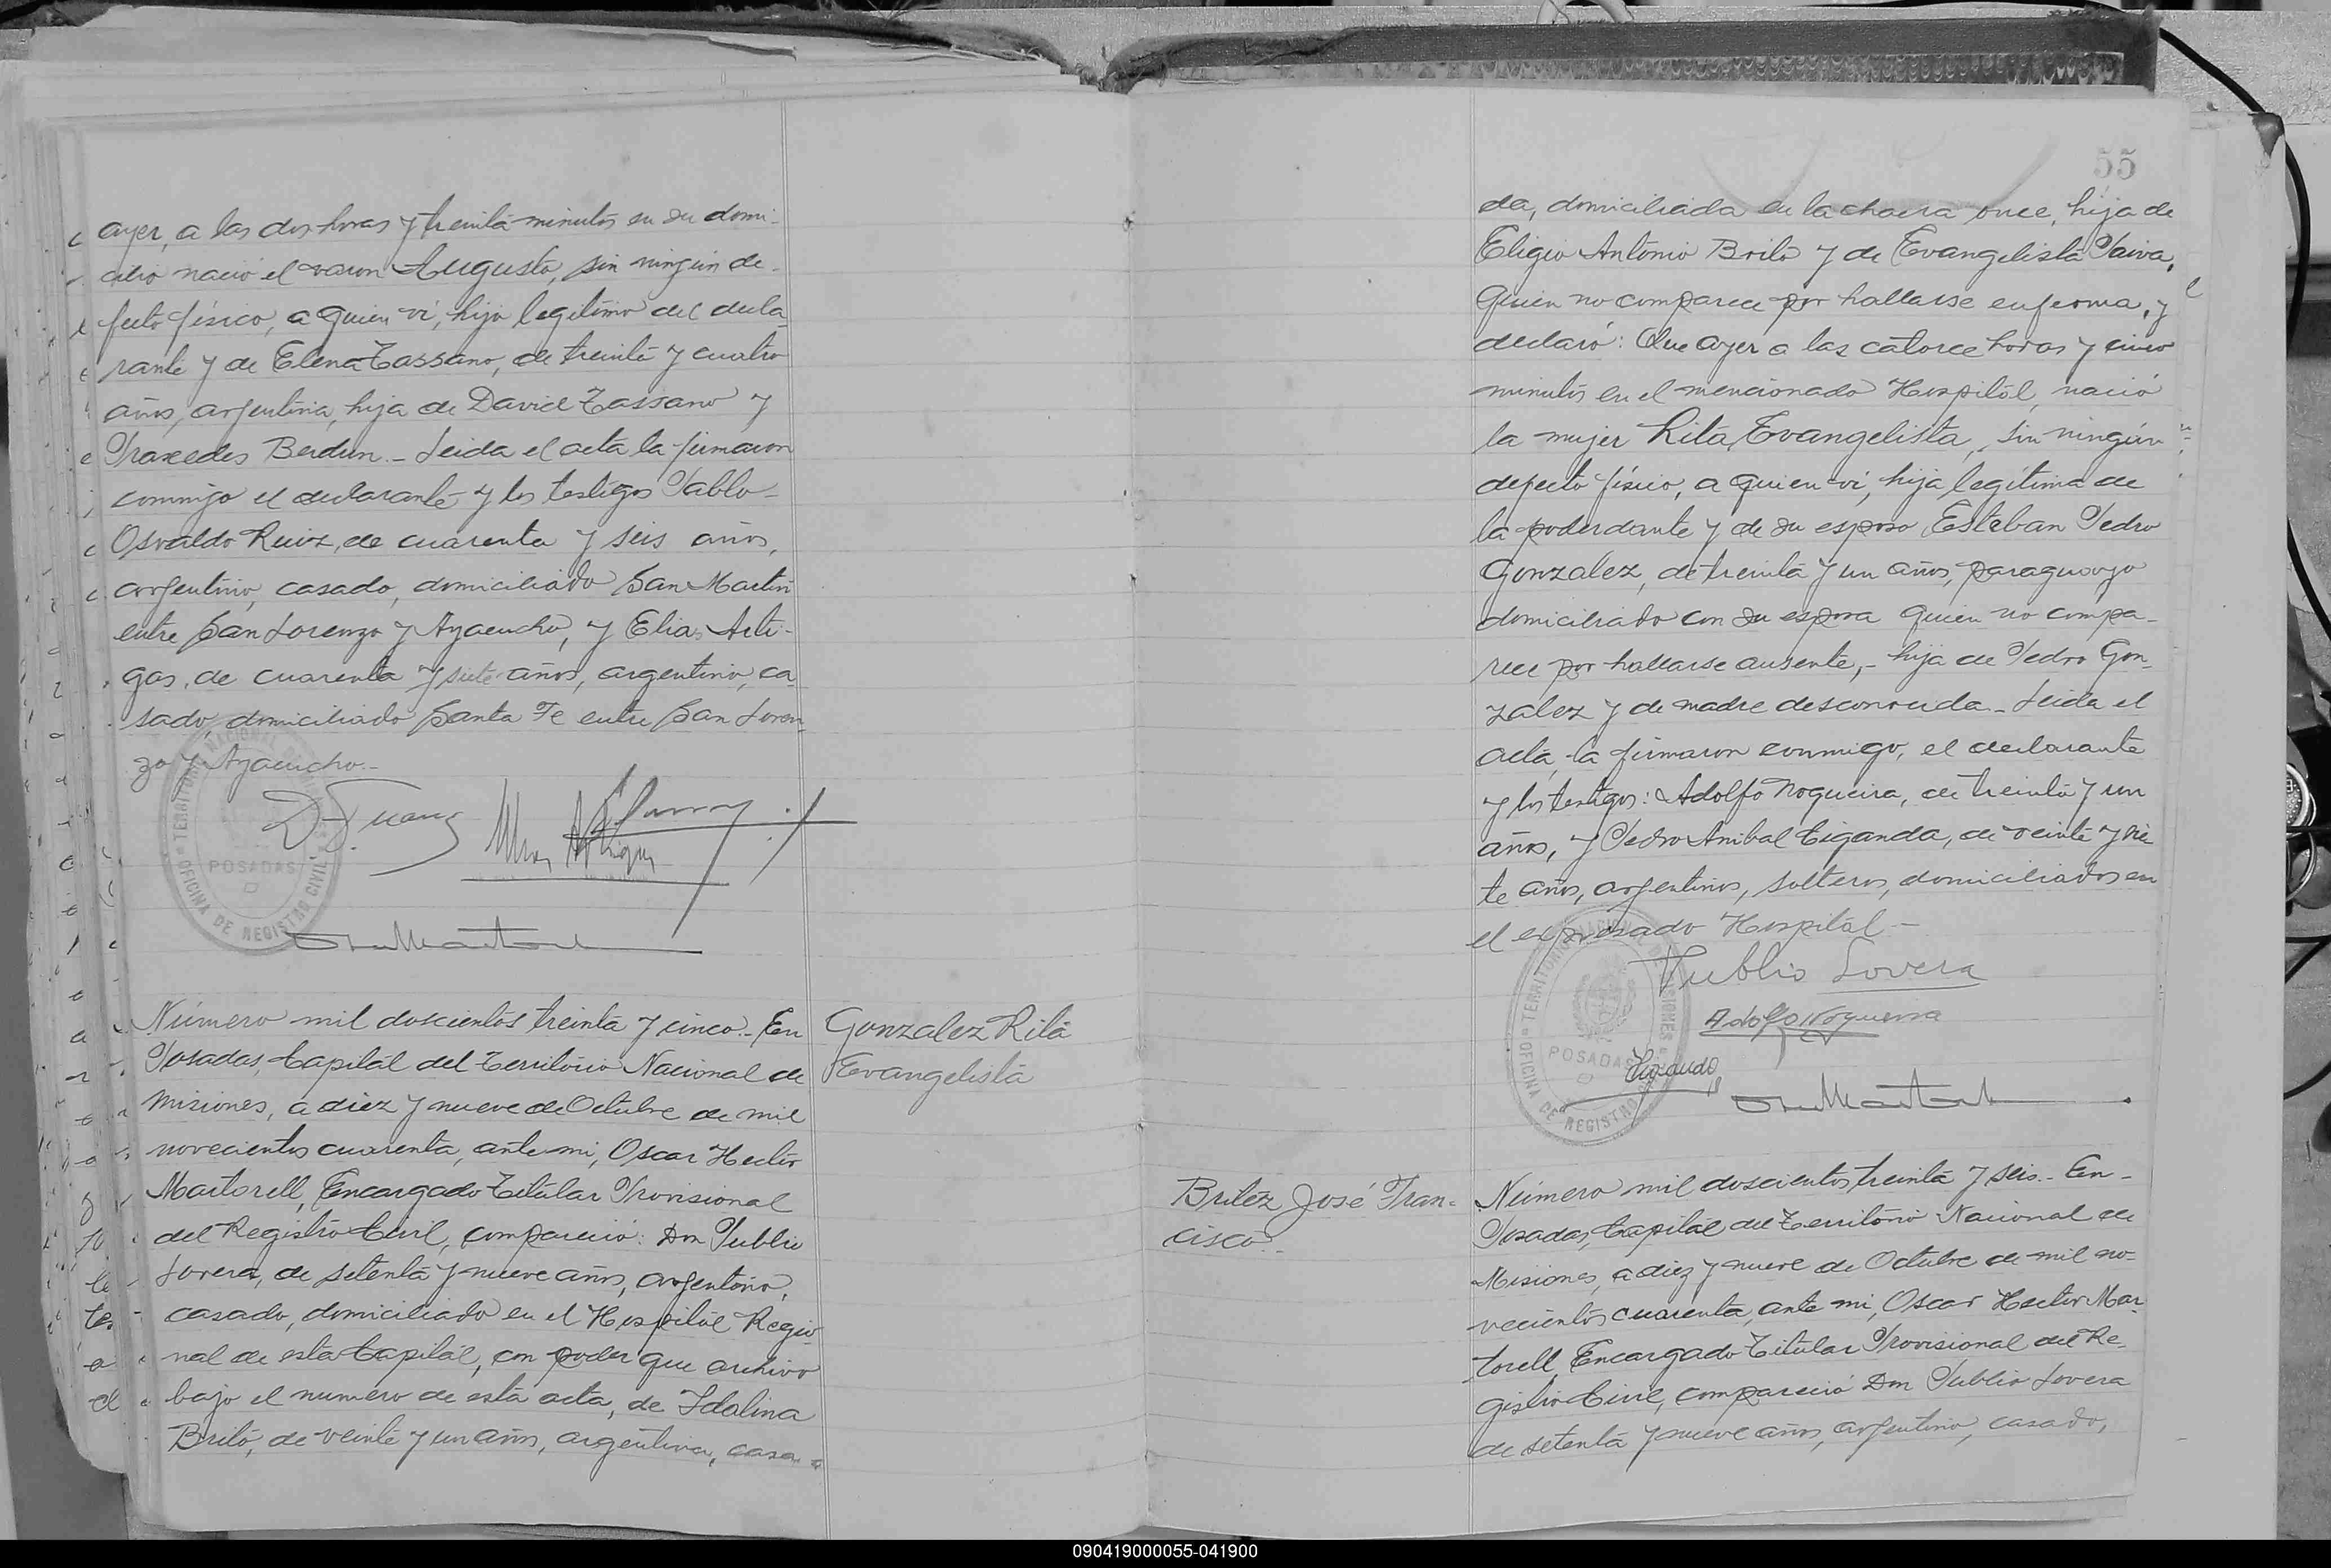 ayer, a las dos horas y treinta minutos en su domi-
cilio nació el varon Augusto, sin ningún de-
fecto físico, a quien vi, hijo legítimo del decla-
rante y de Elena Tassano, de treinta y cuatro
años, argentina, hija de David Tassano y
Praxedes Berdun.- Leida el acta la firmaron
conmigo el declarante y los testigos Pablo-
Osvaldo Ruiz, de cuarenta y seis años,
argentino, casado, domiciliado San Martin
entre San Lorenzo y Ayacucho, y Elias Arti-
gas, de cuarenta y siete años, argentino, ca-
sado, domiciliado Santa Fe entre San Loren-
zo y Ayacucho.-
TERRITORIO NACIONAL DE MISIONES
POSADAS
OFICINA DE REGISTRO CIVIL
Número mil doscientos treinta y cinco.- En
Posadas, Capital del Territorio Nacional de
Misiones, a diez y nueve de Octubre de mil
novecientos cuarenta, ante mi, Oscar Hector
Martorell, Encargado Titular Provisional
del Registro Civil, compareció: Don Publio
Lovera, de setenta y nueve años, argentino,
casado, domiciliado en el Hospital Regio-
nal de esta Capital, con poder que archivo
bajo el numero de esta acta, de Idalina
Brito, de veinte y un años, argentina, casa-
Gonzalez Rita
Evangelista
55
da, domiciliada en la chacra once, hija de
Eligio Antonio Brito y de Evangelista Paiva,
quien no comparece por hallarse enferma, y
declaró: Que ayer a las catorce horas y cinco
minutos en el mencionado Hospital, nació
la mujer Rita Evangelista, sin ningún
defecto físico, a quien vi, hija legítima de
la poderdante y de su esposo Esteban Pedro
Gonzalez, de treinta y un años, paraguayo
domiciliado con su esposa quien no compa-
rece por hallarse ausente,- hijo de Pedro Gon-
zalez y de madre desconocida.- Leida el
acta, la firmaron conmigo, el declarante
y los testigos: Adolfo Nogueira, de treinta y un
años, y Pedro Anibal Ciganda, de veinte y sie-
te años, argentinos, solteros, domiciliados en
el expresado Hospital.-
Publio Lovera
Adolfo Nogueira
TERRITORIO NACIONAL DE MISIONES
POSADAS
OFICINA DE REGISTRO CIVIL
Britez José Fran-
cisco.-
Número mil doscientos treinta y seis.- En-
Posadas, Capital del Territorio Nacional de
Misiones, a diez y nueve de Octubre de mil no-
vecientos cuarenta, ante mi, Oscar Hector Mar-
torell, Encargado Titular Provisional del Re-
gistro Civil, compareció Don Publio Lovera
de setenta y nueve años, argentino, casado,
090419000055-041900